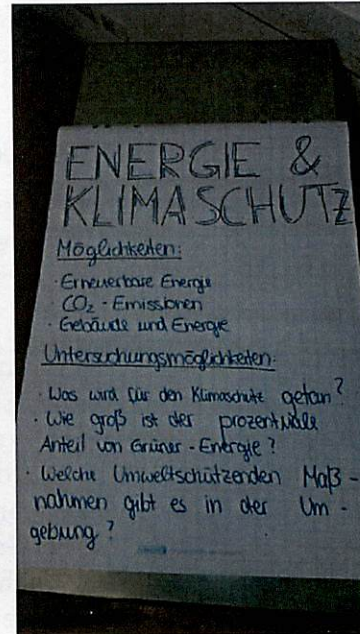 ENERGIE &
KLIMASCHUTZ
Möglichkeiten:
· Erneuerbare Energie
· CO₂ - Emissionen
· Gebäude und Energie
Untersuchungsmöglichkeiten:
· Was wird für den Klimaschutz getan?
· Wie groß ist der prozentuale
Anteil von Grüner - Energie?
· Welche Umweltschützenden Maß -
nahmen gibt es in der Um -
gebung?